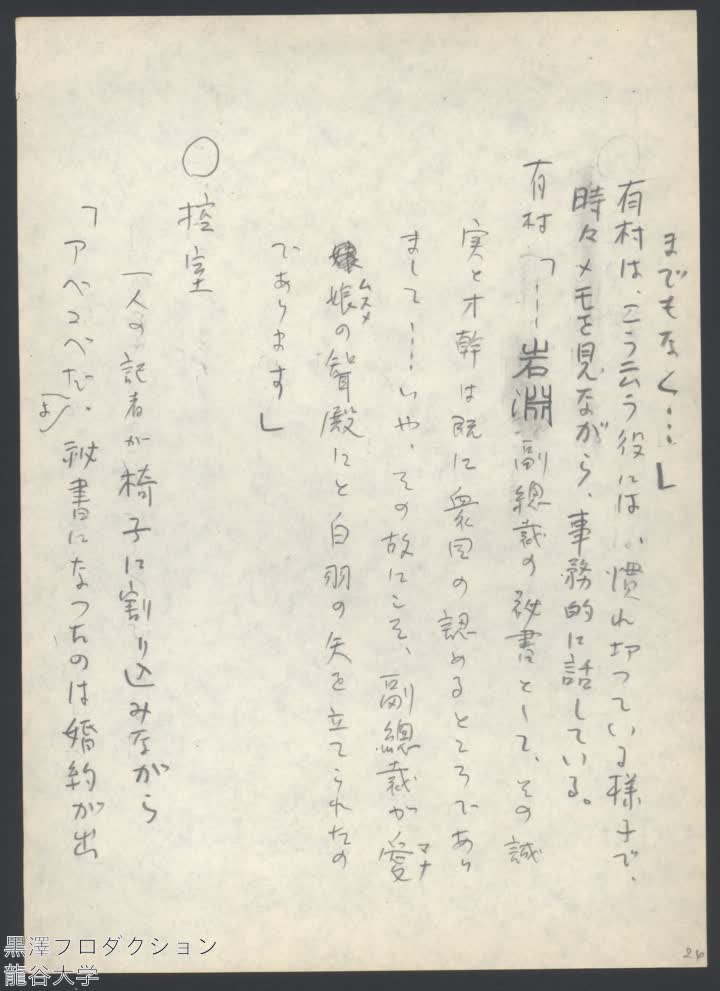 までもなく…」
有村は、こう云う役には、慣れ切つている様子で、
時々メモを見ながら、事務的に話している。
有村「……岩淵副總裁の秘書として、その誠
実と才幹は既に衆目の認めるところであり
まして……いや、その故にこそ、副總裁が愛
マナ
娘の聟殿にと白羽の矢を立てられたの
ムスメ
であります」
○控室
一人の記者が椅子に割り込みながら
「アベコベだ、秘書になつたのは婚約が出
よ
26
黒澤プロダクション
龍谷大学